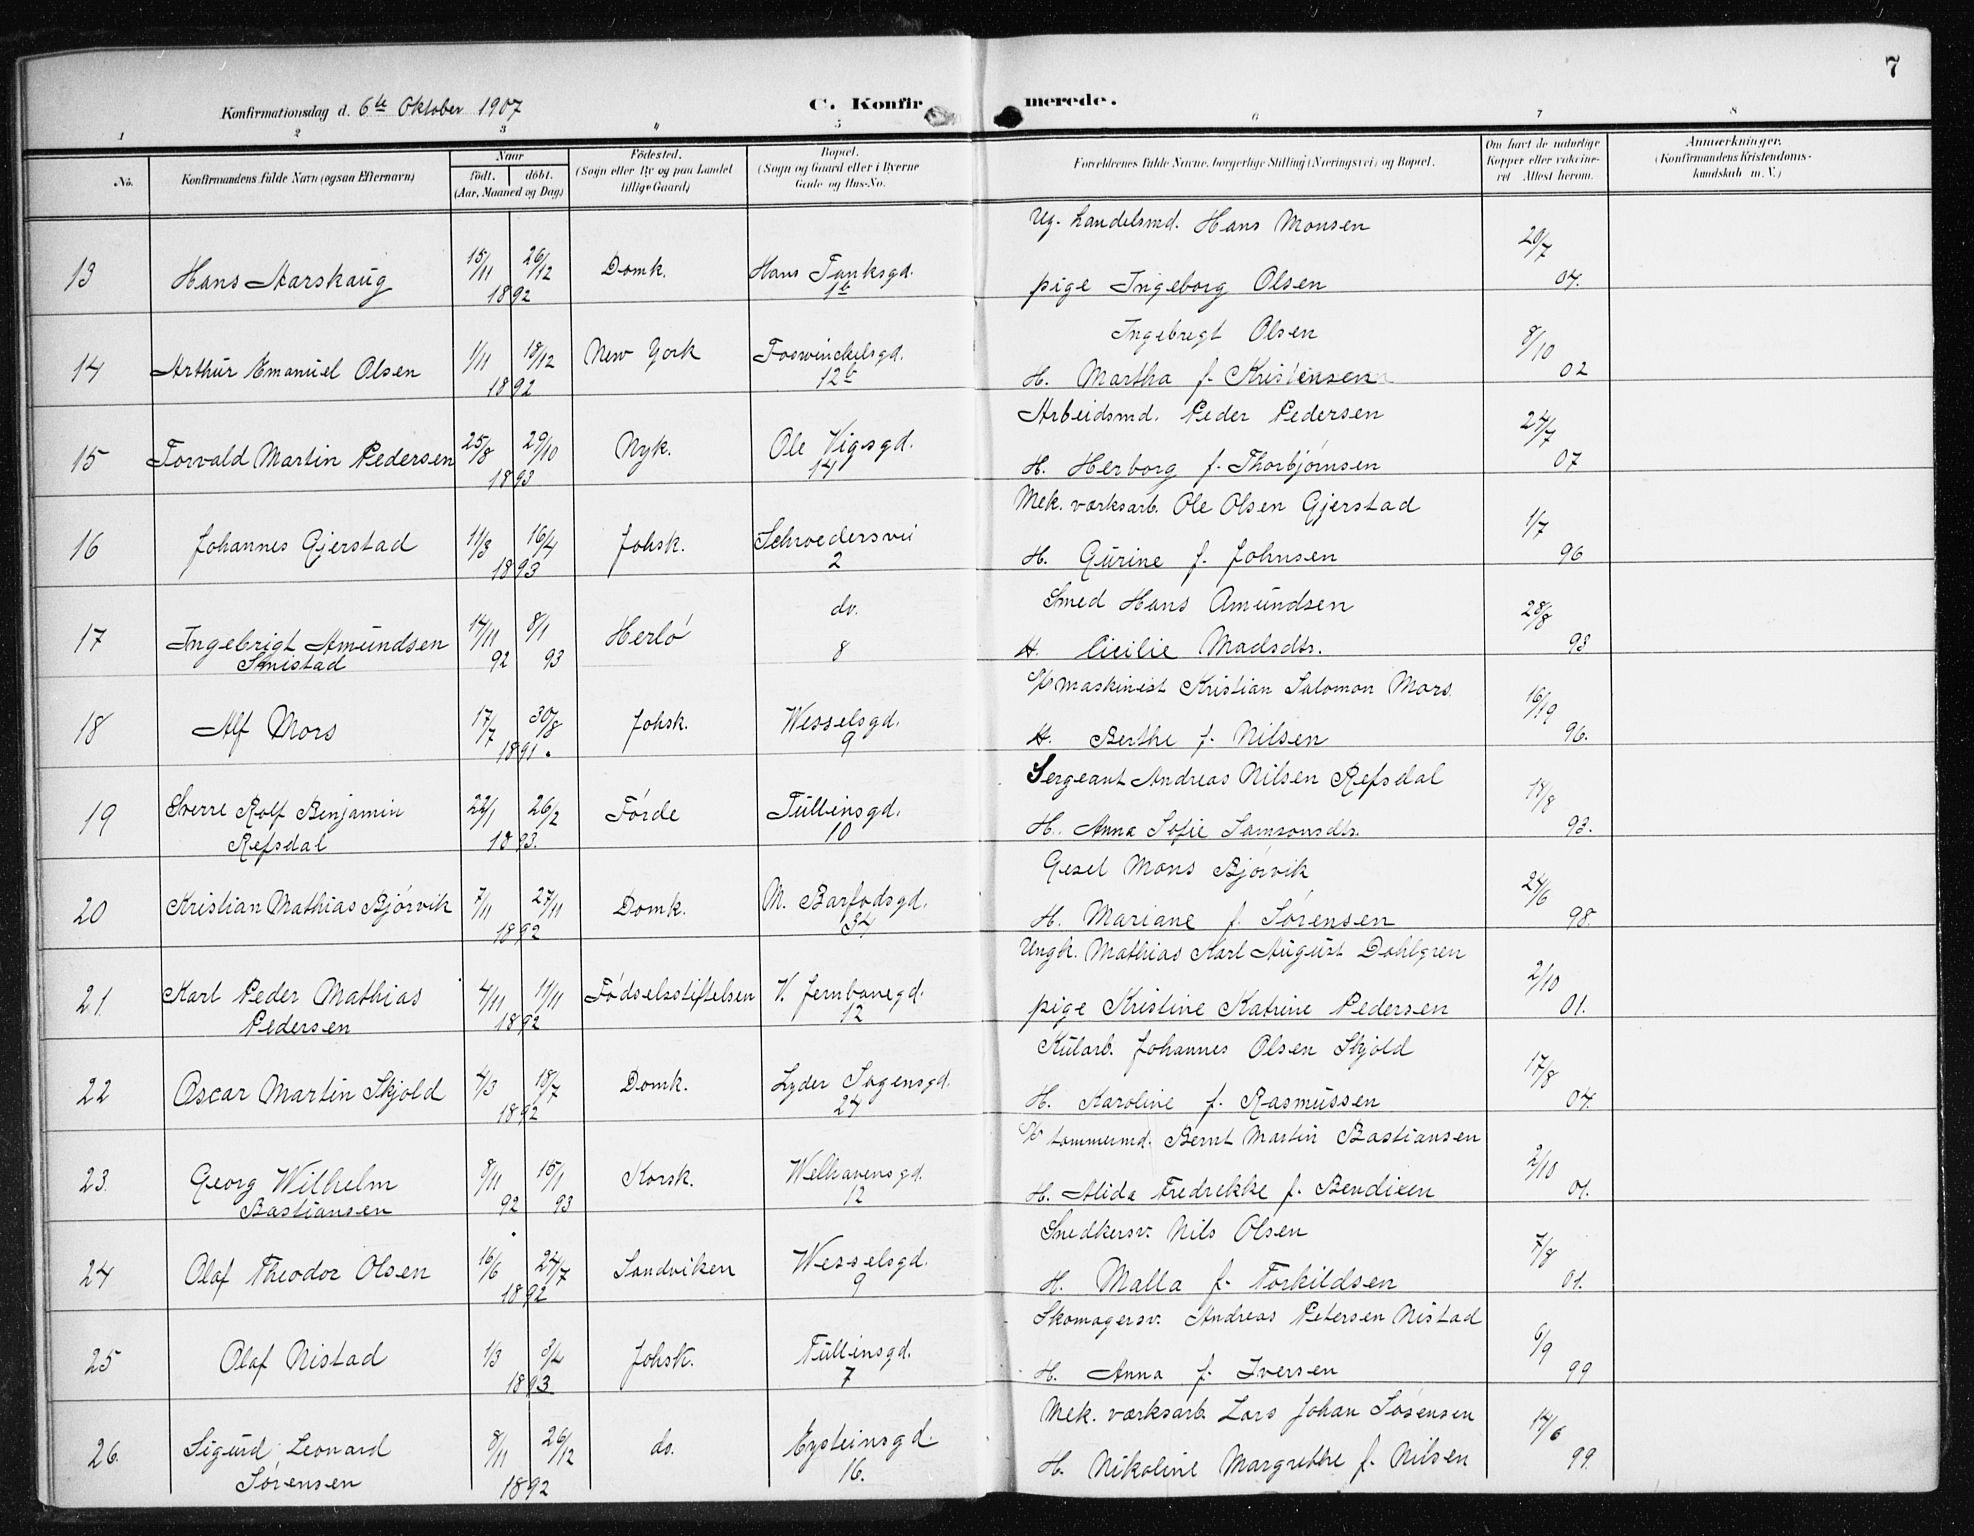 7
Konfirmationsdag d. 6te Oktober 1907 C. Konfirmerede.
1 2 3 4 5 6 7 8
No. Konfirmandens fulde Navn (ogsaa Efternavn) Naar født. døbt. (Aar, Maaned og Dag) Fødested. (Sogn eller By og paa Landet tillige Gaard) Bopæl. (Sogn og Gaard eller i Byerne Gade og Hus-No. Forældrenes fulde Navne, borgerlige Stilling (Næringsvei) og Bopæl. Om havt de naturlige Kopper eller vakcineret Attest herom. Anmærkninger. (Konfirmandens Kristendomskundskab m. V.)
Ug. handelsmd. Hans Monsen
13 Hans Aarskaug 15/11 26/12 1892 Domk. Hans Tanksgd. 1b pige Ingeborg Olsen 20/7 04.
Ingebrigt Olsen
14 Arthur Emanuel Olsen 1/11 18/12 1892 New York Foswinckelsgd. 12b H. Martha f. Kristensen 8/10 02
Arbeidsmd. Peder Pedersen
15 Torvald Martin Pedersen 25/8 29/10 1893 Nyk. Ole Vigsgd. 14 H. Herborg f. Thorbjørnsen 24/7 07
Mek. værksarb. Ole Olsen Gjerstad
16 Johannes Gjerstad 11/3 16/4 1893 Johsk. Schroedersvei 2 H. Gurine f. Johnsen 1/7 96
Smed Hans Amundsen
17 Ingebrigt Amundsen Smistad 17/11 92 8/1 93 Herlö do. 8 H. Cicilie Madsdtr. 28/8 93
S/s maskinist Kristian Salomon Mors.
18 Alf Mors 17/7 30/8 1891. Johsk. Wesselsgd. 9 H. Berthe f. Nilsen 96.
Sergeant Andreas Nilsen Refsdal
19 Sverre Rolf Benjamin Refsdal 22/1 26/2 1893. Førde Tullinsgd. 10 H. Anna Sofie Samsonsdtr. 18/8 93.
Gesel Mons Bjørvik
20 Kristian Mathias Bjørvik 7/11 27/11 1892 Domk. M. Barfodsgd. 34 H. Mariane f. Sørensen 24/6 98.
Ungk. Mathias Karl August Dahlgren
21. Karl Peder Mathias Pedersen 4/11 11/11 1892 Fødselsstiftelsen V. Jernbanegd. 12 pige Kristine Katrine Pedersen 2/10 01.
Kularb. Johannes Olsen Skjold
22 Oscar Martin Skjold 4/3 18/7 1892 Domk. Lyder Sagensgd. 24 H. Karoline f. Rasmussen 17/8 04.
tømmermd. Bernt Martin Bastiansen
23. Georg Wilhelm Bastiansen 8/11 92 15/1 93 Korsk. Welhavensgd. 12 H. Alida Fredrekke f. Bendixen 2/10 01.
Snedkersv. Nils Olsen
24 Olaf Theodor Olsen 16/6 24/7 1892 Sandviken Wesselsgd. 9 H. Malla f. Torkildsen 7/8 01.
Skomagersv. Andreas Petersen Nistad
25 Olaf Nistad 1/3 3/4 1893 Johsk. Tullinsgd. 7 H. Anna f. Iversen 6/9 99
Mek. værksarb. Lars Johan Sørensen
26. Sigurd Leonard Sørensen 8/11 26/12 1892 do. Eysteinsgd. 16. H. Nikoline Margrethe f. Nilsen 14/6 99.